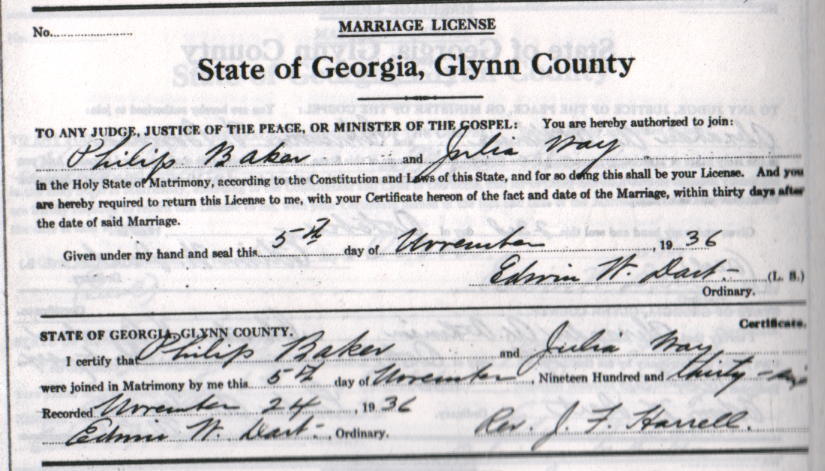 No.
MARRIAGE LICENSE
State of Georgia, Glynn County
TO ANY JUDGE, JUSTICE OF THE PEACE, OR MINISTER OF THE GOSPEL: You are hereby authorized to join:
Philip Baker and Julia Way
in the Holy State of Matrimony, according to the Constitution and Laws of this State, and for so doing this shall be your License. And you
are hereby required to return this License to me, with your Certificate hereon of the fact and date of the Marriage, within thirty days after
the date of said Marriage.
Given under my hand and seal this 5th day of November, 1936
Edwin W. Dart (L. S.)
Ordinary.
STATE OF GEORGIA, GLYNN COUNTY. Certificate.
I certify that Philip Baker and Julia Way
were joined in Matrimony by me this 5th day of November, Nineteen Hundred and thirty-six
Recorded November 24, 1936
Edwin W. Dart, Ordinary. Rev. J. F. Harrell.